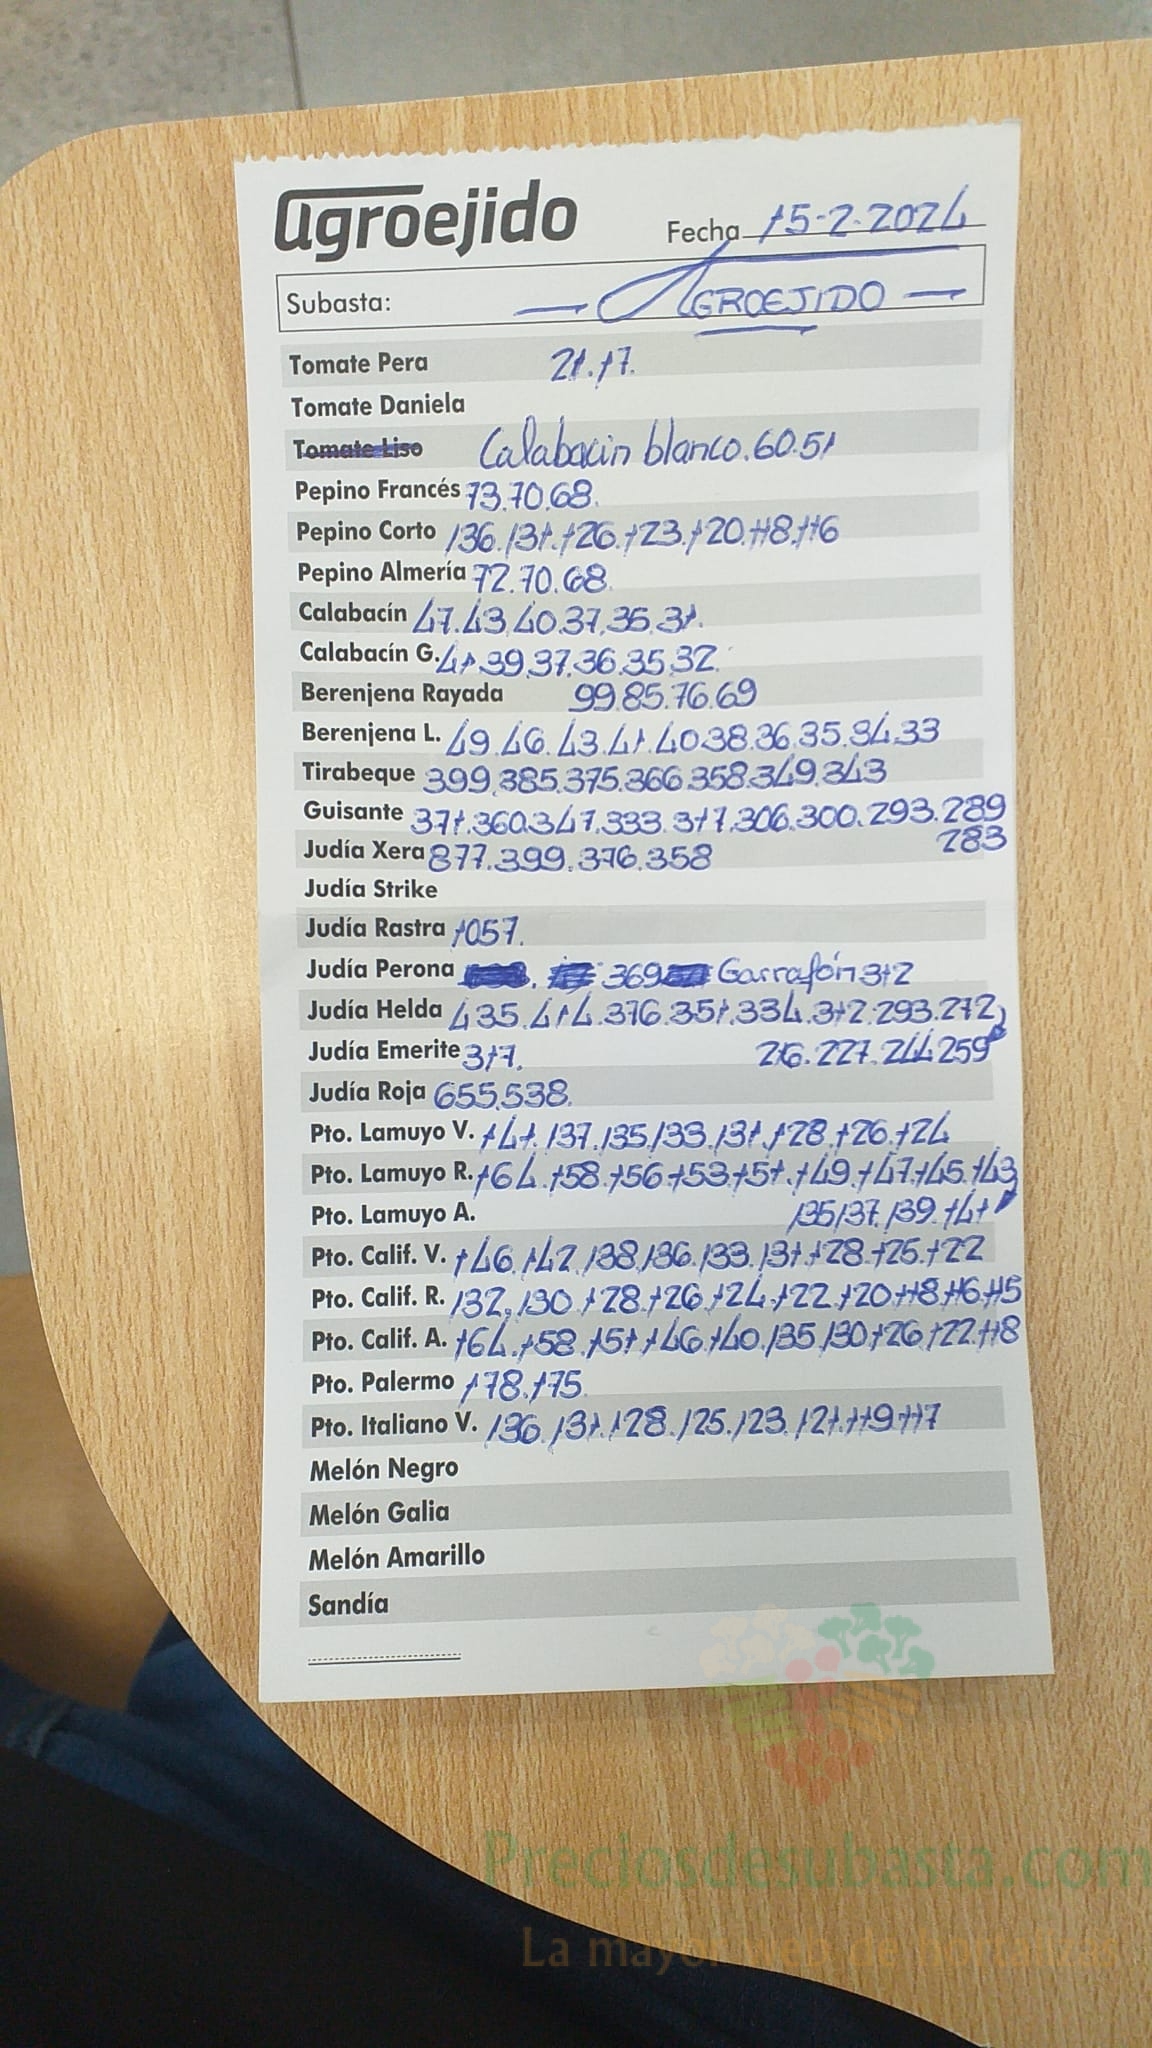 agroejido
Fecha 15-2-2024
Subasta: — AGROEJIDO —
Tomate Pera 21.17.
Tomate Daniela
Tomate Liso Calabacin blanco.60.51
Pepino Francés 73.70.68.
Pepino Corto 136.131.126.123.120.118.116
Pepino Almería 72.70.68.
Calabacín 47.43.40.37.35.31.
Calabacín G. 41.39.37.36.35.32.
Berenjena Rayada 99.85.76.69
Berenjena L. 49.46.43.41.40.38.36.35.34.33
Tirabeque 399.385.375.366.358.349.343
Guisante 371.360.347.333.317.306.300.293.289
283
Judía Xera 877.399.376.358
Judía Strike
Judía Rastra 1057.
Judía Perona 369 Garrafón 312
Judía Helda 435.414.376.351.334.312.293.272
216.227.244.259
Judía Emerite 317.
Judía Roja 655.538.
Pto. Lamuyo V. 141.137.135.133.131.128.126.124
Pto. Lamuyo R. 164.158.156.153.151.149.147.145.143
135.137.139.141
Pto. Lamuyo A.
Pto. Calif. V. 146.142.138.136.133.131.128.125.122
Pto. Calif. R. 132.130.128.126.124.122.120.118.116.115
Pto. Calif. A. 164.158.151.146.140.135.130.126.122.118
Pto. Palermo 178.175.
Pto. Italiano V. 136.131.128.125.123.121.119.117
Melón Negro
Melón Galia
Melón Amarillo
Sandía
Preciosdesubasta.com
La mayor web de